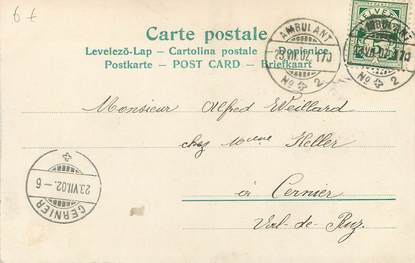 6 €
Carte postale
Levelező-Lap — Cartolina postale — Dopisnice
Postkarte — POST CARD — Briefkaart
AMBULANT
23.VII.02.
No 2
HELVETIA
AMBULANT
23.VII.02.
No 2
Monsieur Alfred Weillard
chez Mme Keller
à Cernier
Val-de-Ruz.
23.VII.02.–6
CERNIER